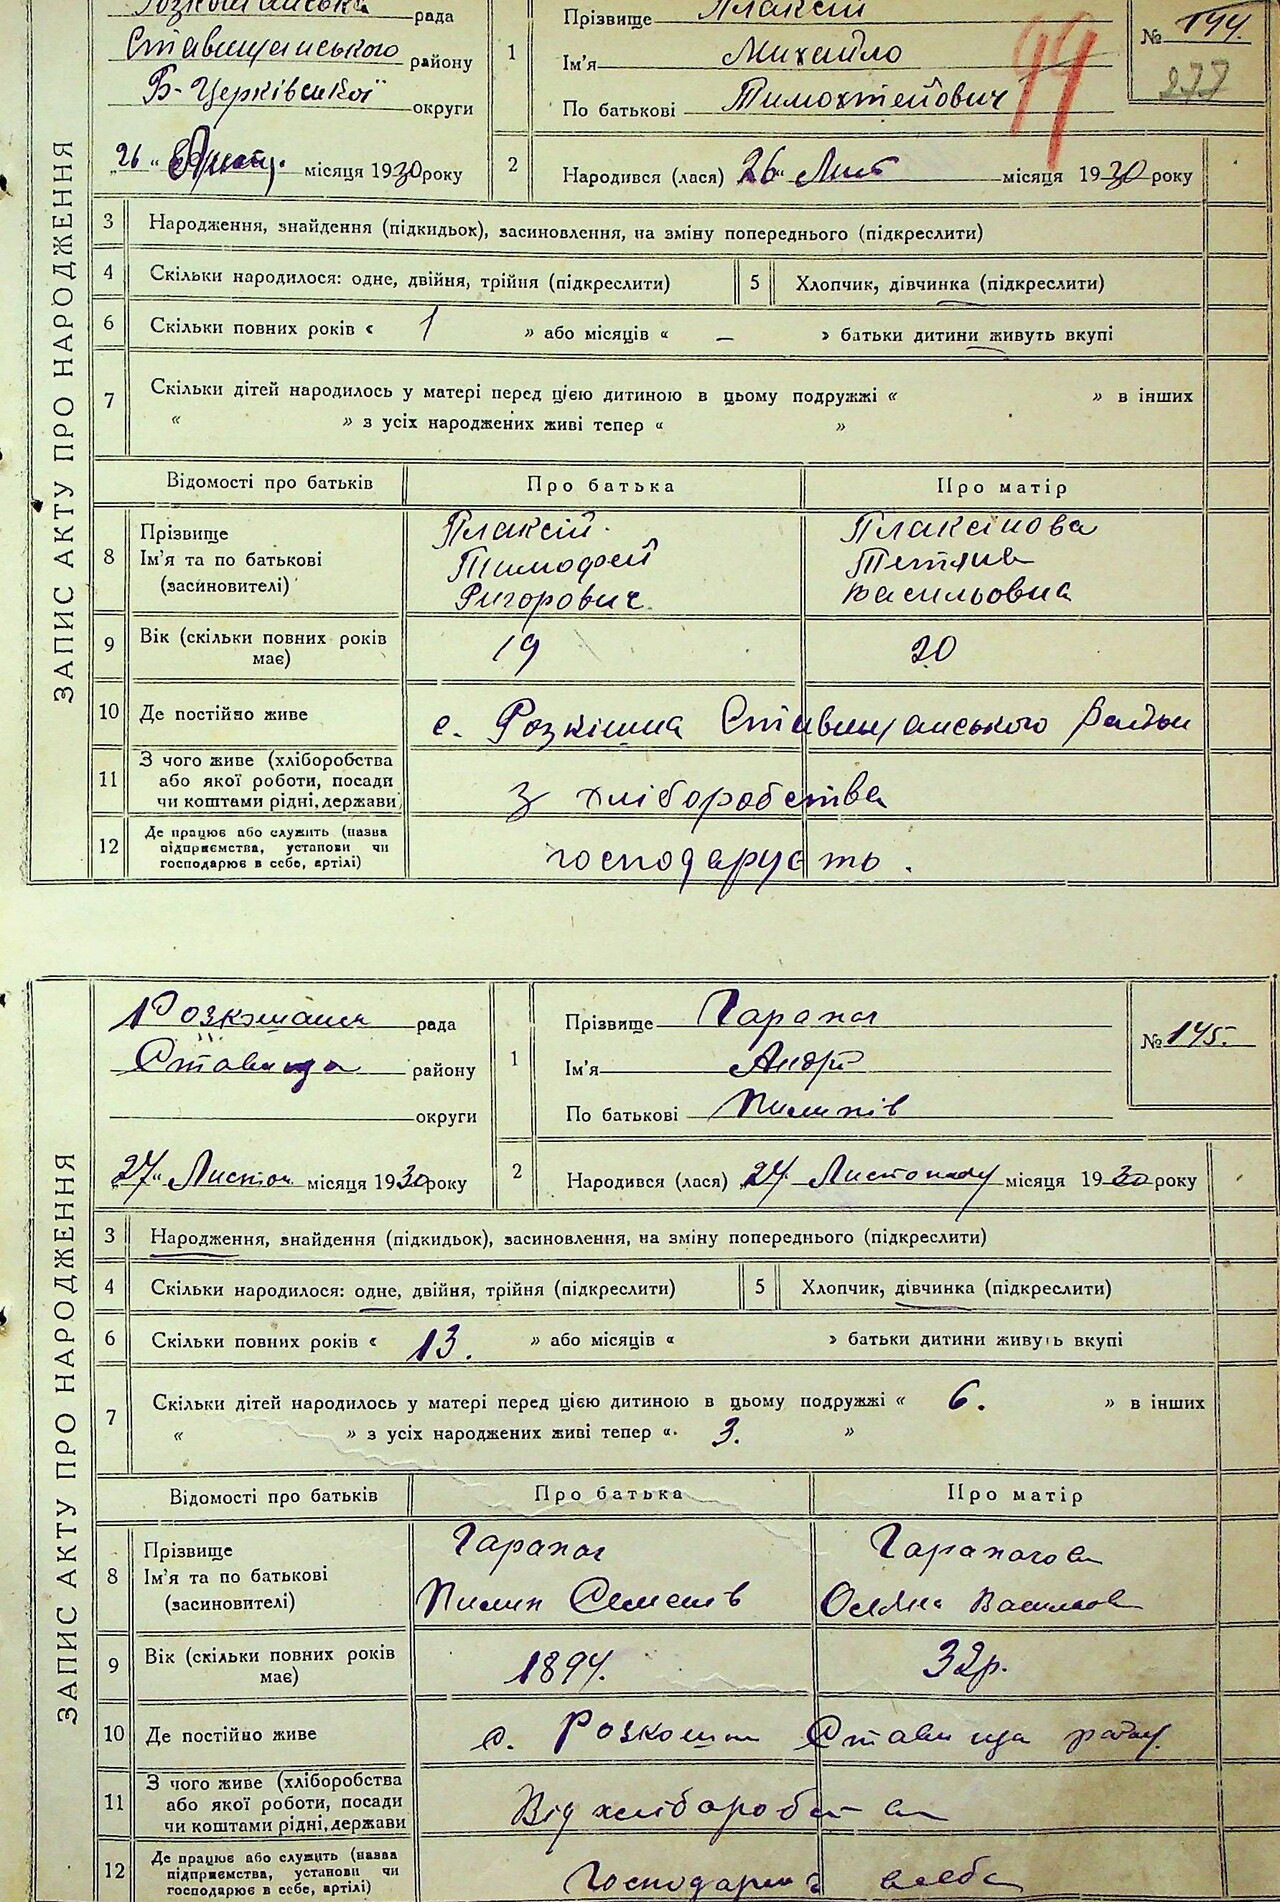 рада
Ставищанського району
Б-Церківської округи
26 місяця 1930 року
ЗАПИС АКТУ ПРО НАРОДЖЕННЯ
1
Прізвище Плаксій
Ім'я Михайло
По батькові Тимохтейович
№ 144.
277
99
2
Народився (лася) „26" Лист місяця 1930 року
3 Народження, знайдення (підкидьок), засиновлення, на зміну попереднього (підкреслити)
4 Скільки народилося: одне, двійня, трійня (підкреслити) 5 Хлопчик, дівчинка (підкреслити)
6 Скільки повних років « 1 » або місяців « – » батьки дитини живуть вкупі
7 Скільки дітей народилось у матері перед цією дитиною в цьому подружжі « » в інших
« » з усіх народжених живі тепер « »
Відомості про батьків Про батька Про матір
8 Прізвище Ім'я та по батькові (засиновителі)
Плаксій Тимофей Григорович
Плаксінова Тетяна Васильовна
9 Вік (скільки повних років має) 19 20
10 Де постійно живе с. Розкішна Ставищанського району
11 З чого живе (хліборобства або якої роботи, посади чи коштами рідні, держави) З хліборобства
12 Де працює або служить (назва підприємства, установи чи господарює в себе, артілі) господарують.
Розкошана рада
Ставища району
округи
„27" Листоп місяця 1930 року
ЗАПИС АКТУ ПРО НАРОДЖЕННЯ
1
Прізвище Гарапач
Ім'я Андрій
По батькові Пилипів
№ 145.
2
Народився (лася) „27" Листопаду місяця 1930 року
3 Народження, знайдення (підкидьок), засиновлення, на зміну попереднього (підкреслити)
4 Скільки народилося: одне, двійня, трійня (підкреслити) 5 Хлопчик, дівчинка (підкреслити)
6 Скільки повних років « 13. » або місяців « » батьки дитини живуть вкупі
7 Скільки дітей народилось у матері перед цією дитиною в цьому подружжі « 6. » в інших
« » з усіх народжених живі тепер « 3. »
Відомості про батьків Про батька Про матір
8 Прізвище Ім'я та по батькові (засиновителі)
Гарапач Пилип Семенів
Гарапачова Олена Василівна
9 Вік (скільки повних років має) 1894. 32р.
10 Де постійно живе с. Розкошна Ставища району
11 З чого живе (хліборобства або якої роботи, посади чи коштами рідні, держави Від хліборобства
12 Де працює або служить (назва підприємства, установи чи господарює в себе, артілі) Господарить в себе